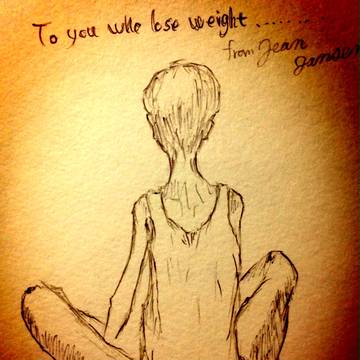 To you who lose weight ........
from Jean
Jansen